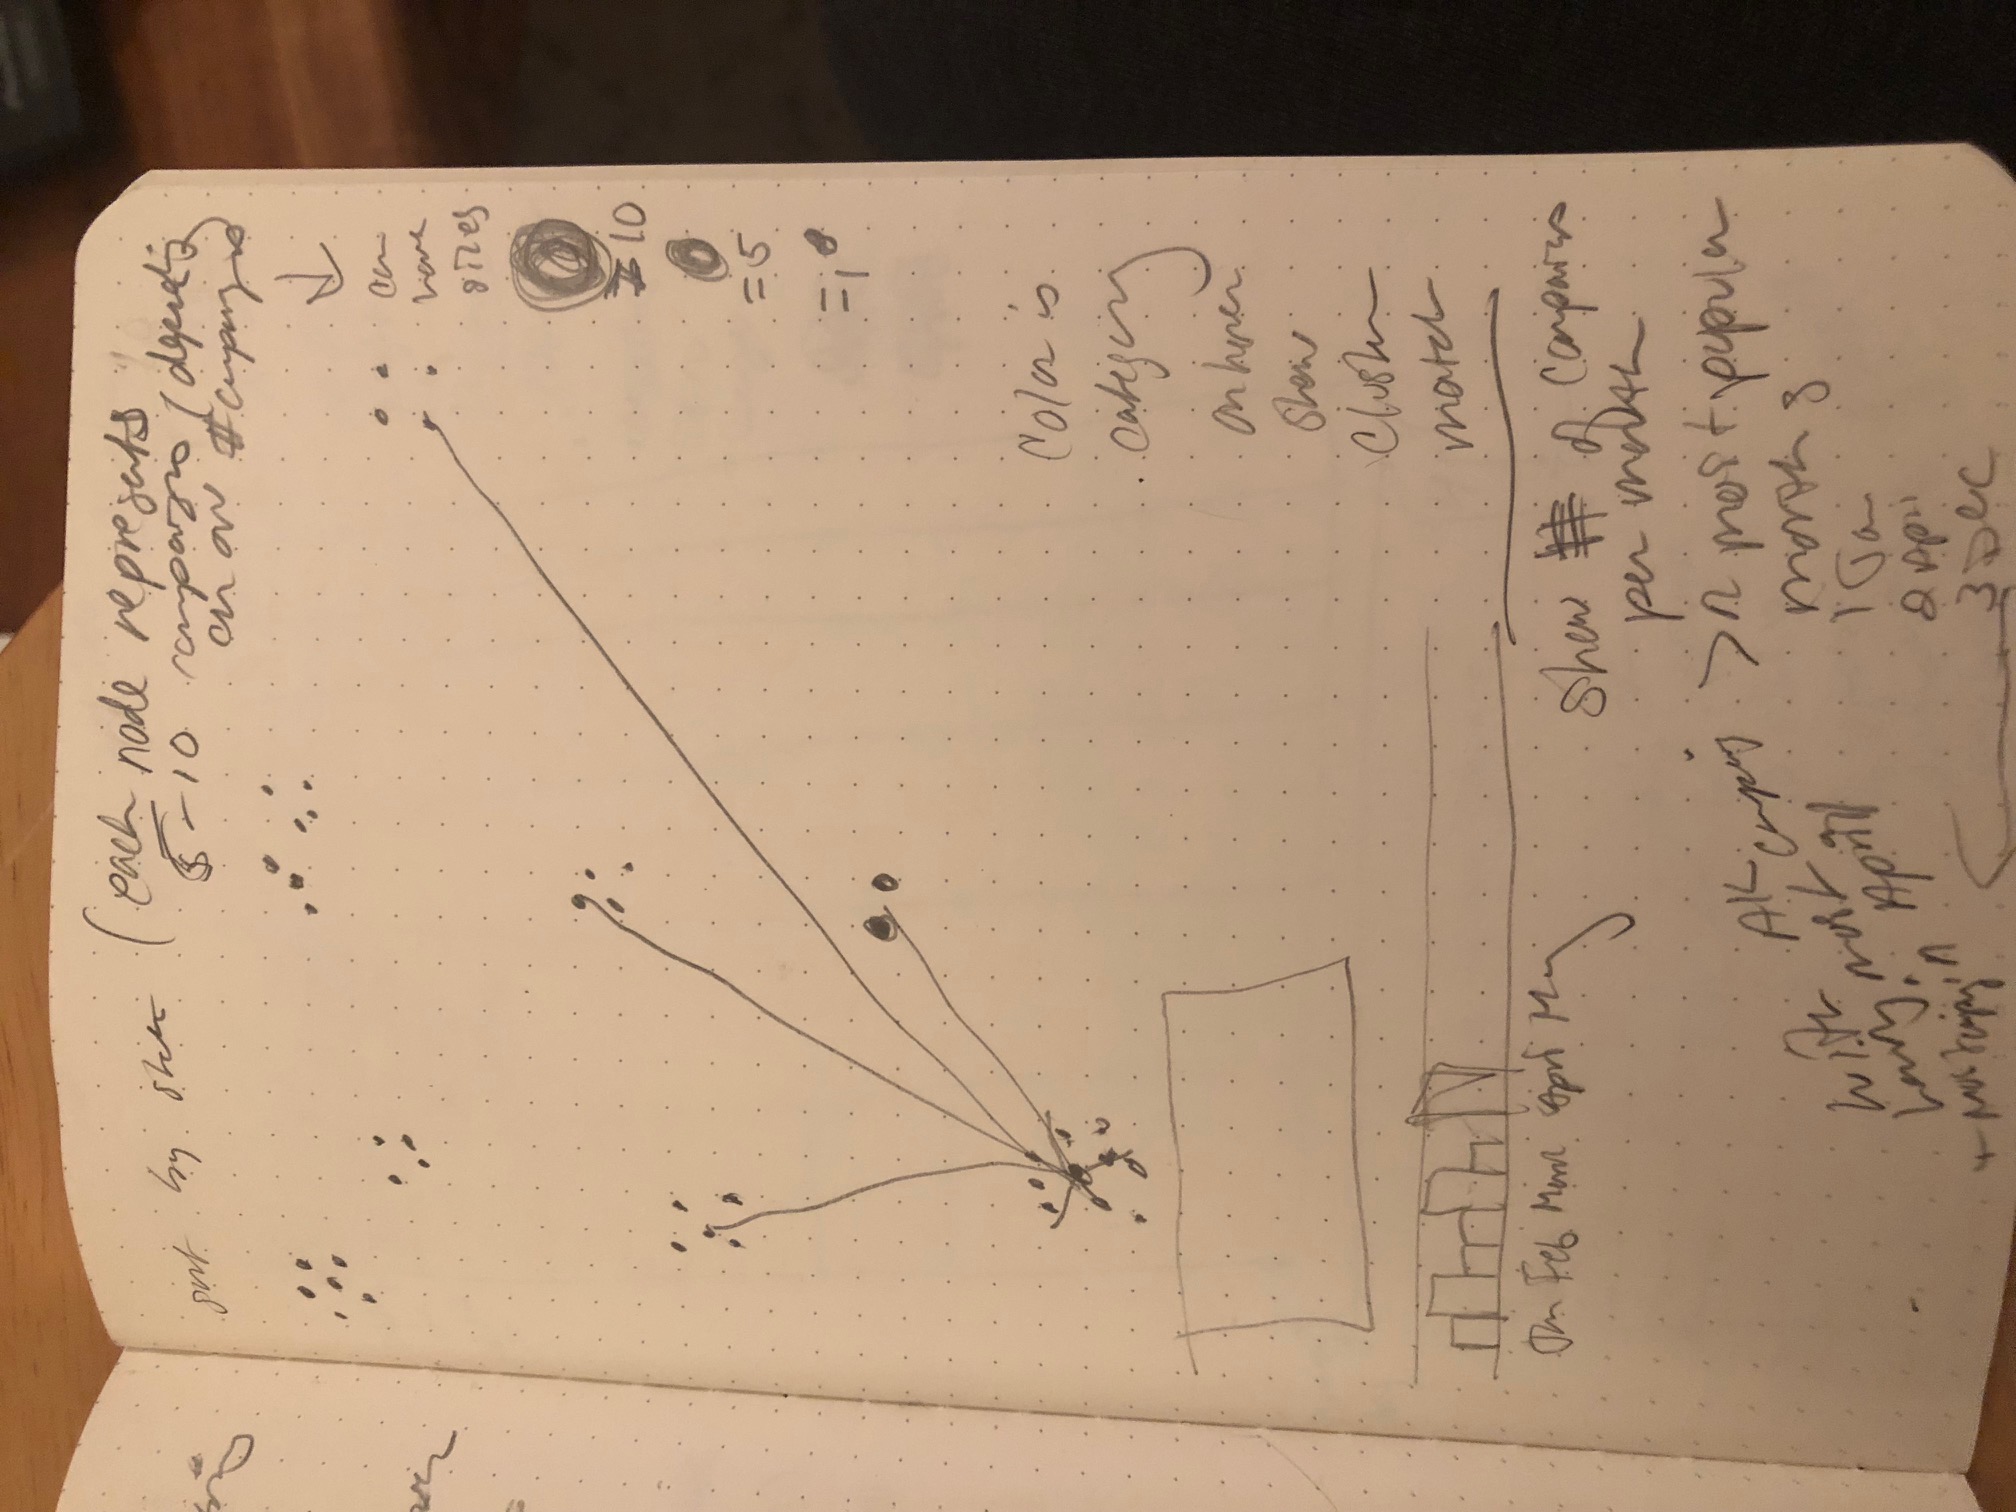 sort by state (each node represents
5-10 campaigns / depending
on our # campaigns
↓
can
have
sizes
= 10
= 5
= 1
Color is
category
on hover
show
cluster
match
Jan Feb March April May
Show # of campaigns
per month
> n most popular
months
1 Jan
2 April
3 Dec
with AK
having most campaigns
+ most campaign in April